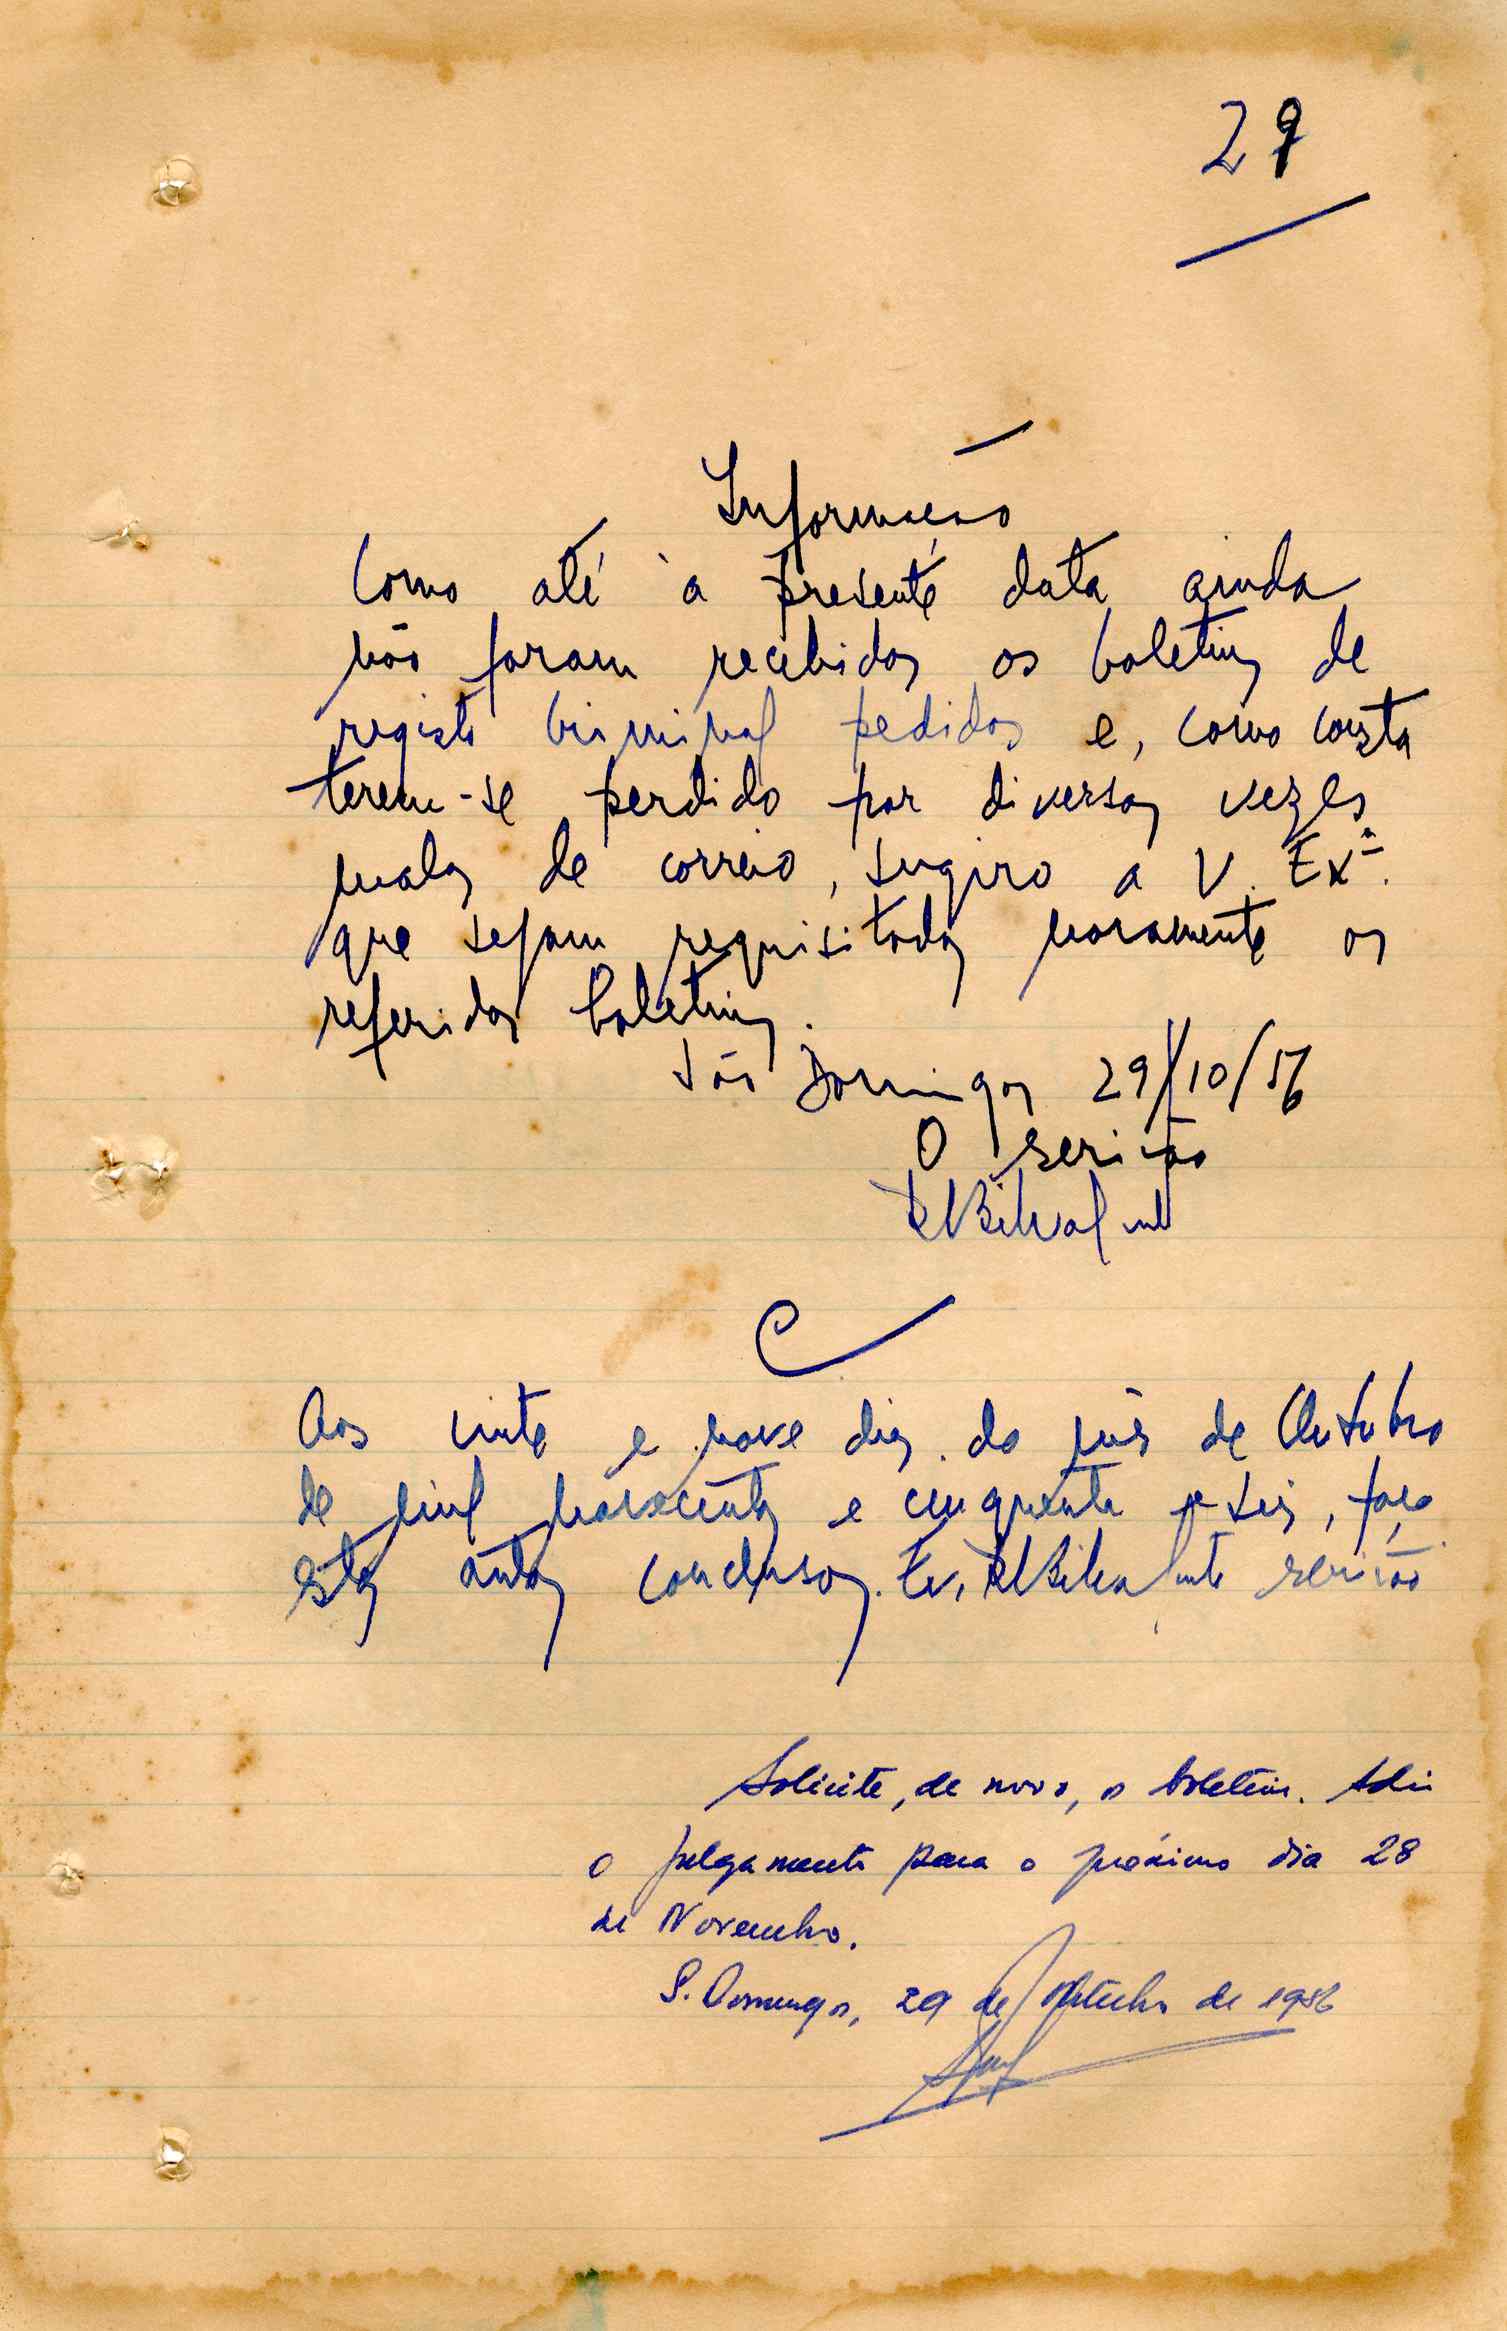 29
Informação
Como até à presente data ainda
não foram recebidos os boletins de
registo criminal pedidos e, como consta
terem-se perdido por diversas vezes
malas de correio, sugiro a V. Exª.
que sejam requisitados novamente os
referidos boletins.
São Domingos 29/10/56
O escrivão
C
Aos vinte e nove dias do mês de Outubro
de mil novecentos e cinquenta e seis, faço
estes autos conclusos. Eu, escrivão
Solicite, de novo, o boletim. Adio
o julgamento para o próximo dia 28
de Novembro.
S. Domingos, 29 de Outubro de 1956